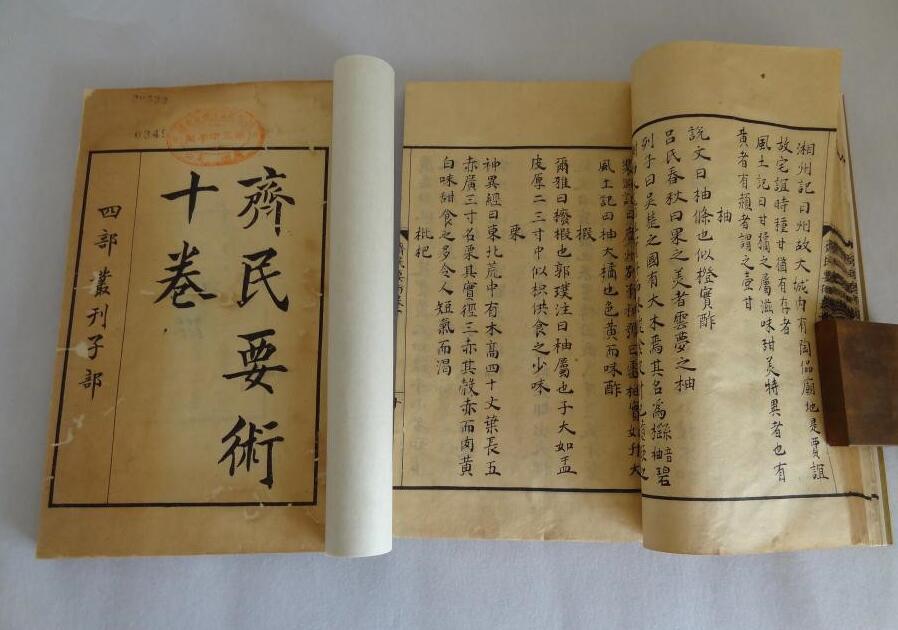 齊民要術
十卷
四部叢刊子部
0349
湘州記曰州故大城內有陶侃廟地是賈誼
故宅誼時種甘猶有存者
風土記曰甘橘之屬滋味甜美特異者也有
黃者有頳者謂之壺甘
柚
說文曰柚條也似橙實酢
呂氏春秋曰果之美者雲夢之柚
列子曰吳楚之國有大木焉其名為櫾
風土記曰柚大橘也色黃而味酢
椵
爾雅曰櫠椵也郭璞注曰柚屬也子大如盂
皮厚二三寸中似枳供食之少味
栗
神異經曰東北荒中有木高四十丈葉長五
赤廣三寸名栗其實徑三赤其殼赤而肉黃
白味甜食之多令人短氣而渴
枇杷